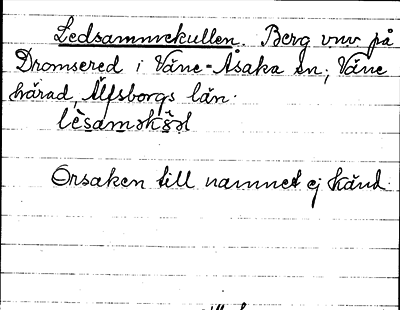 Ledsammekullen. Berg vnv på
Dromsered i Väne-Åsaka sn, Väne
härad, Älfsborgs län.
Orsaken till namnet ej känd.